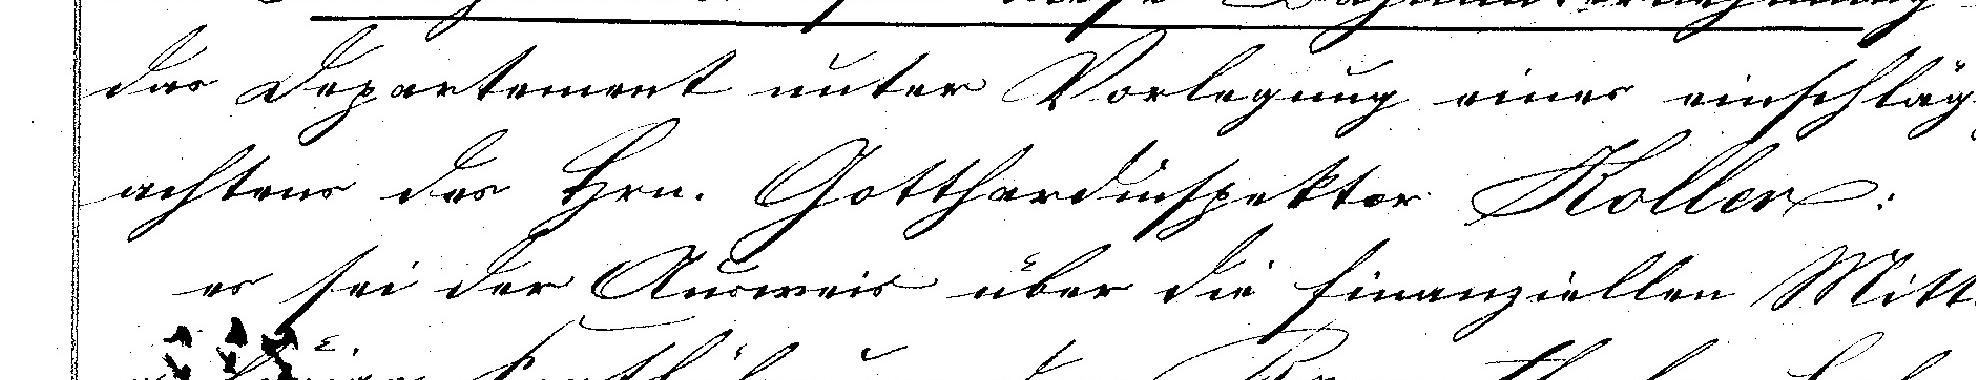 das Departement unter Vorlegung eines einschläg
achtens des Hrn. Gotthardinspektor Koller:
es sei der Ausweis über die finanziellen Mitt